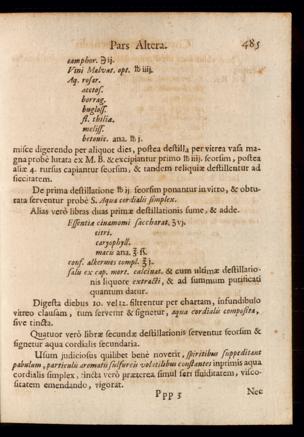 Pars Altera. 485
camphor. ℈ij.
Vini Malvat. opt. ℔ iiij.
Aq. rosar.
acetos.
borrag.
bugloss.
fl. thiliæ.
meliss.
betonic. ana. ℔ j.
misce digerendo per aliquot dies, postea destilla per vitrea vasa ma-
gna probè lutata ex M. B. & excipiantur primo ℔ iiij. seorsim, postea
aliæ 4. rursus capiantur seorsim, & tandem reliquiæ destillentur ad
siccitatem.
De prima destillatione ℔ ij. seorsim ponantur in vitro, & obtu-
rata serventur probè S. Aqua cordialis simplex.
Alias verò libras duas primæ destillationis sume, & adde.
Essentiæ cinamomi saccharat. ℥vj.
citri.
caryophyll.
macis ana. ℥ ß.
conf. alkermes compl. ℥ j.
salis ex cap. mort. calcinat. & cum ultimæ destillatio-
nis liquore extracti, & ad summum purificati
quantum datur.
Digesta diebus 10. vel 12. filtrentur per chartam, infundibulo
vitreo clausam, tum servetur & signetur, aqua cordialis composita,
sive tincta.
Quatuor verò libræ secundæ destillationis serventur seorsim &
signetur aqua cordialis secundaria.
Usum judiciosus quilibet benè noverit, spiritibus suppeditant
pabulum, particulis aromatis sulfureis volatilibus constantes inprimis aqua
cordialis simplex, tincta verò præterea simul seri fluiditatem, visco-
sitatem emendando, vigorat.
Ppp 3 Nec